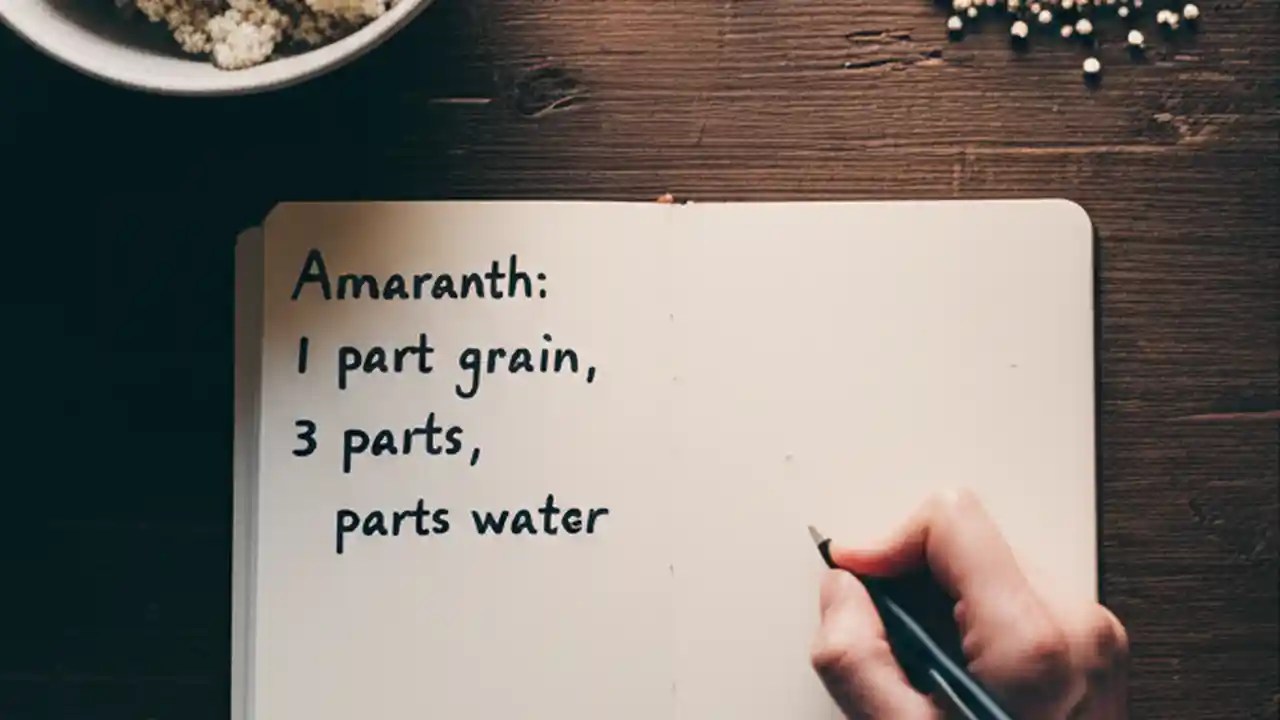 Amaranth:
1 part grain,
3 parts,
parts water